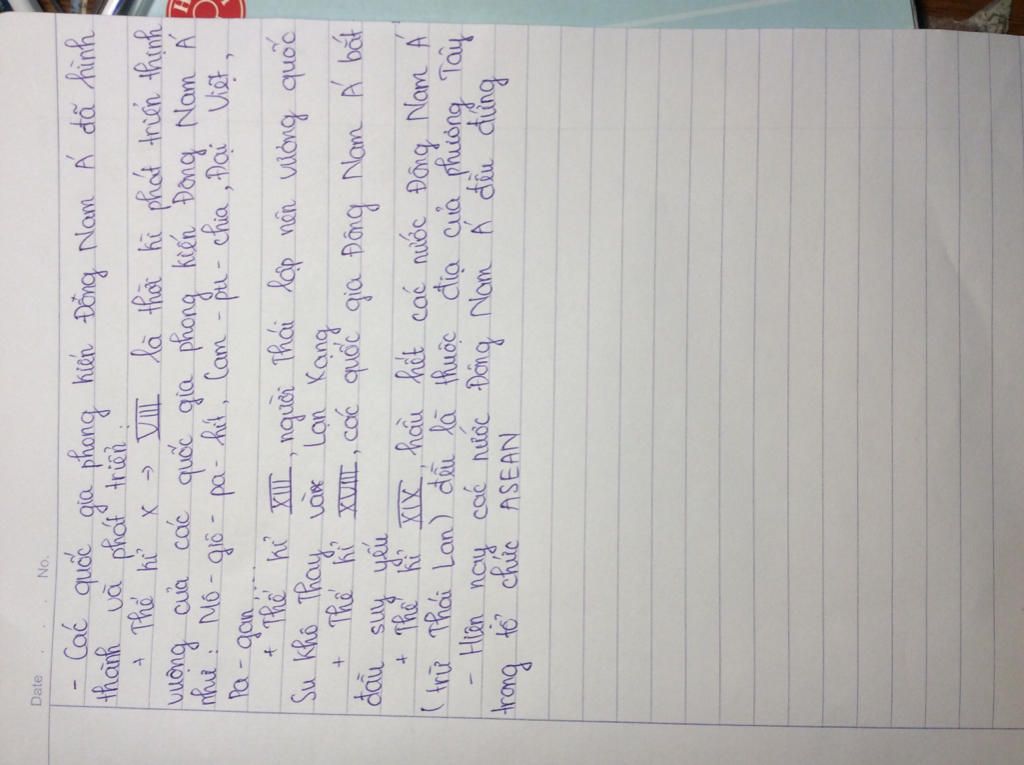 Date . . . No.
- Các quốc gia phong kiến Đông Nam Á đã hình
thành và phát triển:
+ Thế kỉ X → VIII là thời kì phát triển thịnh
vượng của các quốc gia phong kiến Đông Nam Á
như: Mô-giô-pa-hít, Cam-pu-chia, Đại Việt,
Pa-gan....
+ Thế kỉ XIII, người Thái lập nên vương quốc
Su Khô Thay và Lạn Xang
+ Thế kỉ XVIII, các quốc gia Đông Nam Á bắt
đầu suy yếu
+ Thế kỉ XIX, hầu hết các nước Đông Nam Á
(trừ Thái Lan) đều là thuộc địa của phương Tây
- Hiện nay các nước Đông Nam Á đều đứng
trong tổ chức ASEAN
H